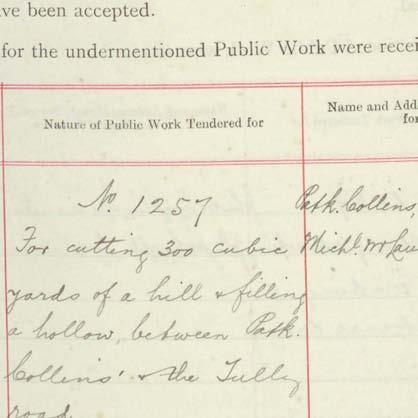 ve been accepted.
for the undermentioned Public Work were recei
Nature of Public Work Tendered for
Name and Add
for
No. 1257
Patk. Collins,
For cutting 300 cubic
Michl. McLau
yards of a hill & filling
a hollow, between Patk.
Collins' & the Tully
road